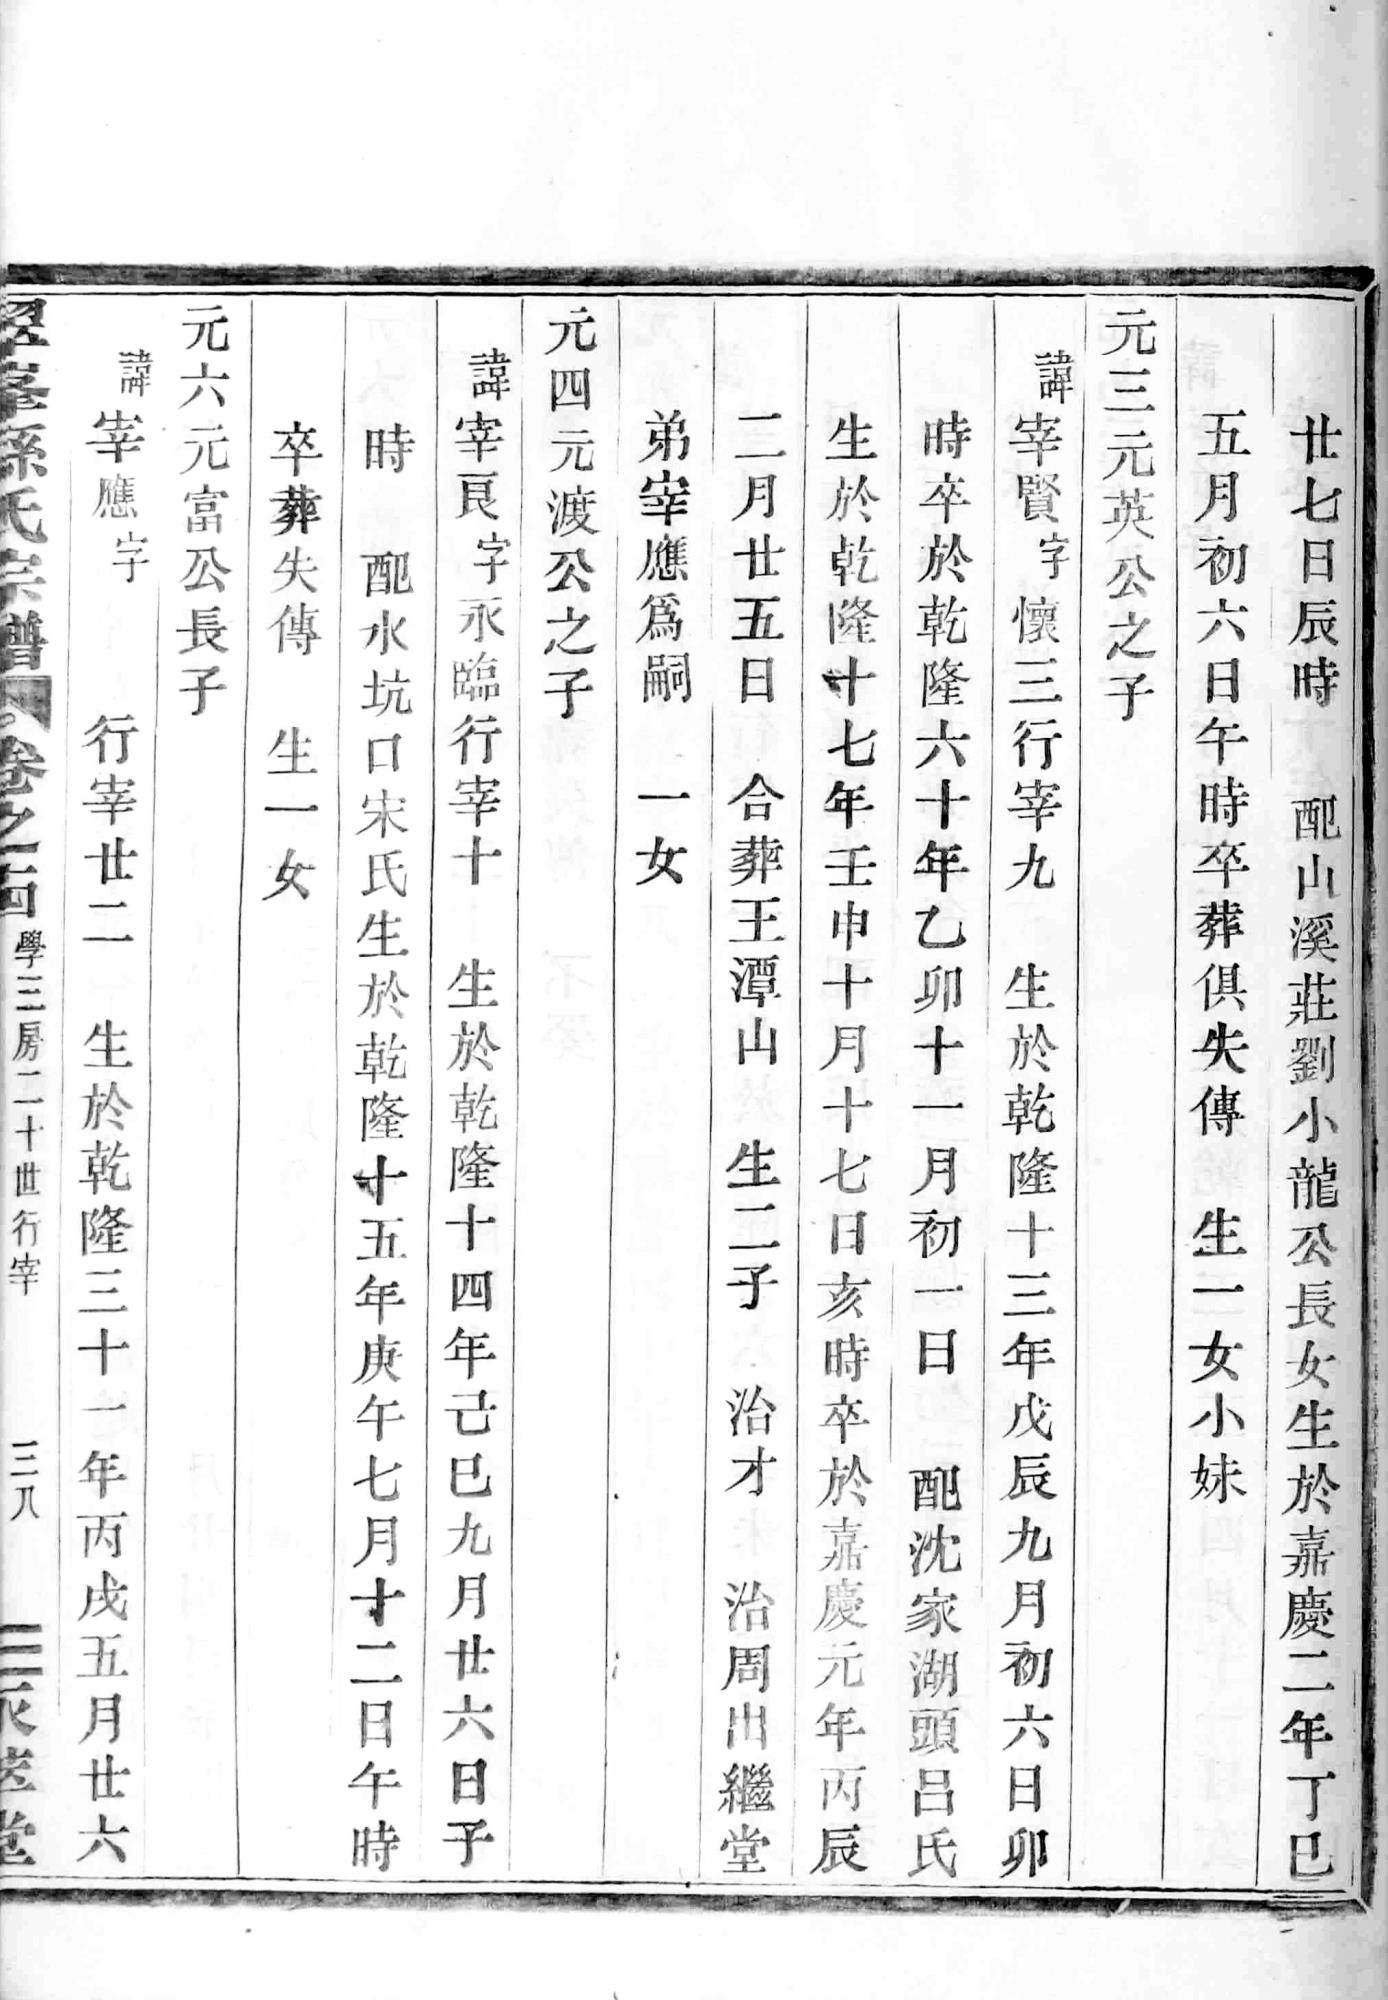 廿七日辰時　配山溪莊劉小龍公長女生於嘉慶二年丁巳
五月初六日午時卒葬俱失傳　生一女小妹
元三元英公之子
諱宰賢字懷三行宰九　生於乾隆十三年戊辰九月初六日卯
時卒於乾隆六十年乙卯十一月初一日　配沈家湖頭呂氏
生於乾隆十七年壬申十月十七日亥時卒於嘉慶元年丙辰
二月廿五日　合葬王潭山　生二子　治才　治周出繼堂
弟宰應爲嗣　一女
元四元渡公之子
諱宰良字永臨行宰十　生於乾隆十四年己巳九月廿六日子
時　配水坑口宋氏生於乾隆十五年庚午七月十二日午時
卒葬失傳　生一女
元六元富公長子
諱宰應字　行宰廿二　生於乾隆三十一年丙戌五月廿六
峯孫氏宗譜　卷之十四　學三房二十世行宰　三八　堂